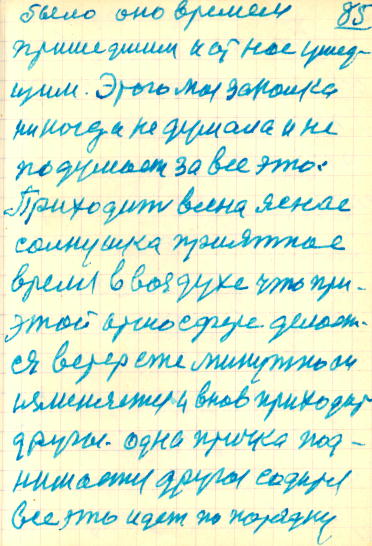 85
было оно времем
пришедшим и от нас ушед-
щим. Этого моя
никогда не думала и не
подумает за все это:
Приходит весна ясная
солнушка приятное
время в воздухе что при-
этой атмосфере делает-
ся ветер сте минутно он
изменяется и вновь приходит
другой. одна птичка под-
нимается другая садится
все это идет по порядку